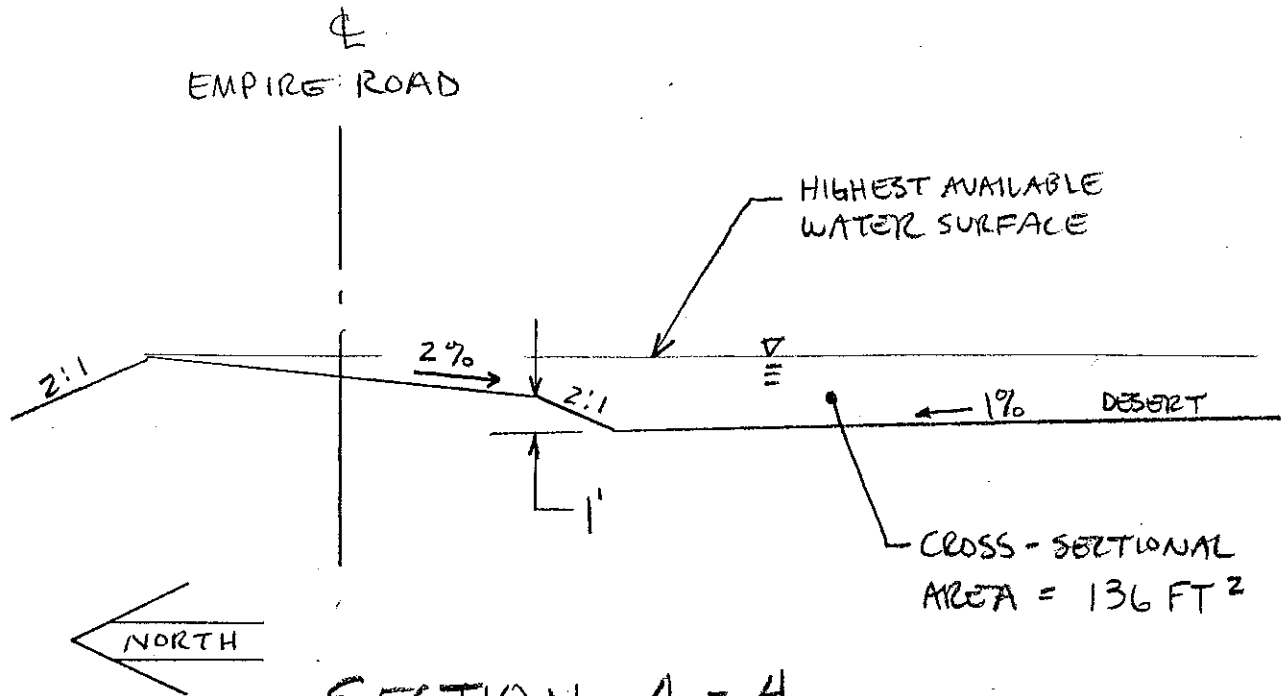 ℄
EMPIRE ROAD
HIGHEST AVAILABLE
WATER SURFACE
2:1
2%
2:1
1%
DESERT
1'
CROSS-SECTIONAL
AREA = 136 FT²
NORTH